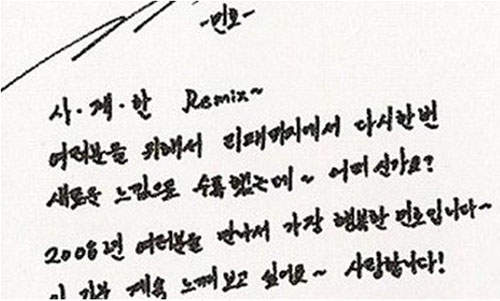 -민호-
사·계·한 Remix~
여러분을 위해서 리패키지에서 다시한번
새로운 느낌으로 수록했는데~ 어떠신가요?
2008년 여러분을 만나서 가장 행복한 민호입니다~
이 기분 계속 느껴보고 싶어요~ 사랑합니다!